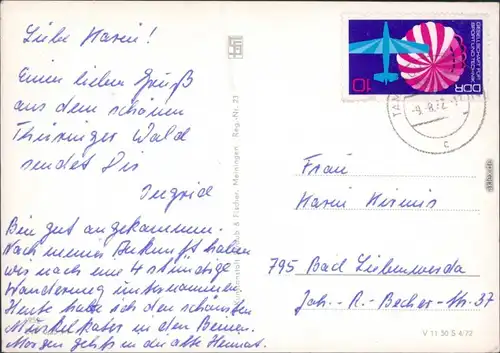 Liebe Karin!
Einen lieben Gruß
aus dem schönen
Thüringer Wald
sendet Dir
Ingrid
Bin gut angekommen.
Nach meiner Ankunft haben
wir noch eine 4 stündige
Wanderung unternommen.
Heute habe ich den schönsten
Muskelkater in den Beinen.
Morgen geht's in die alte Heimat.
& Fischer, Meiningen, Reg.-Nr. 23
GESELLSCHAFT FÜR
SPORT UND TECHNIK
DDR
10
-9.-8.72
c
Frau
Karin
795 Bad Liebenwerda
Joh.-R.-Becher-Str. 37
V 11 50 S 4/72